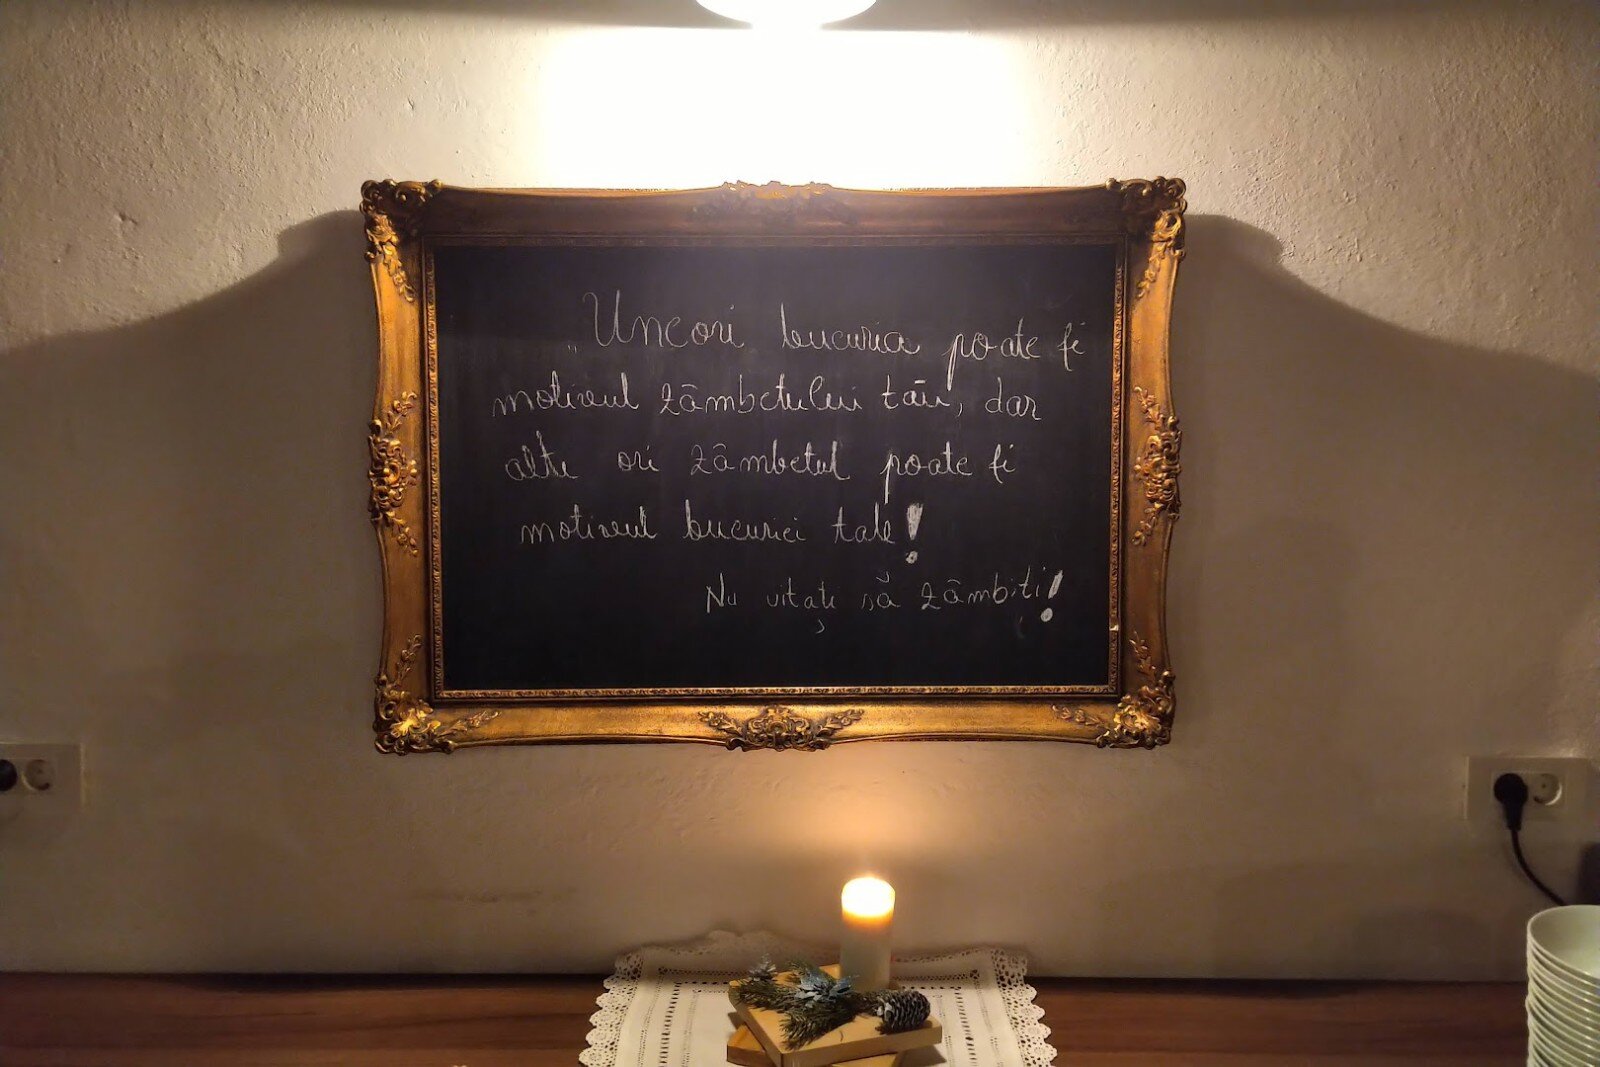 „Uneori bucuria poate fi
motivul zâmbetului tău, dar
alte ori zâmbetul poate fi
motivul bucuriei tale!
Nu uitați să zâmbiți!